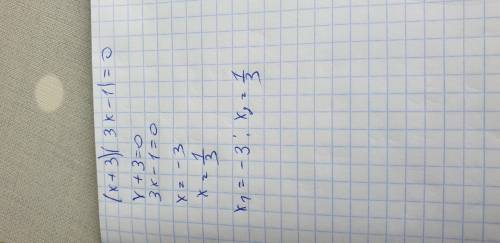 (x+3)(3x-1)=0
x+3=0
3x-1=0
x=-3
x=1/3
x₁=-3; x₂=1/3